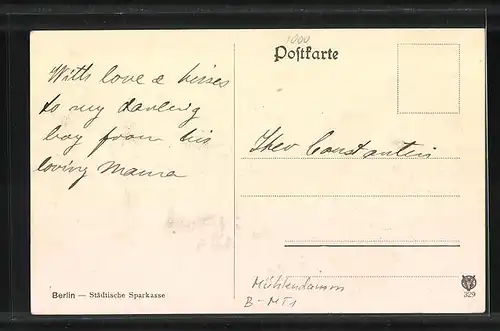 With love & kisses
to my darling
boy from his
loving Mama
Berlin — Städtische Sparkasse
1000
Postkarte
Theo Constantin
Mühlendamm
B-MT1
329